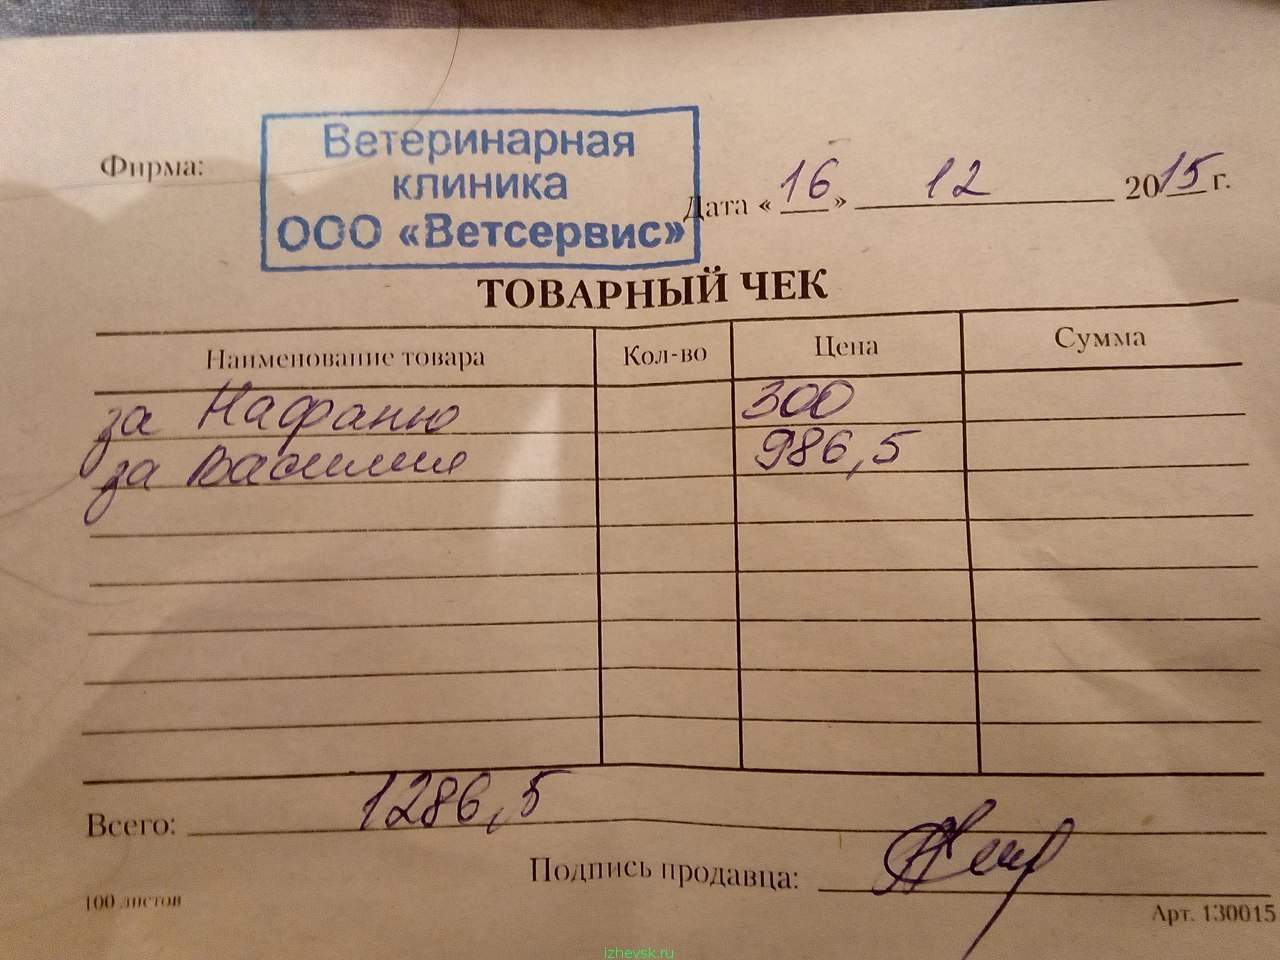 Ветеринарная
клиника
ООО «Ветсервис»
Фирма:
Дата «16» 12 2015 г.
ТОВАРНЫЙ ЧЕК
Наименование товара Кол-во Цена Сумма
за Нафаню 300
за Василия 986,5
Всего: 1286,5
Подпись продавца:
100 листов
Арт. 130015
izhevsk.ru